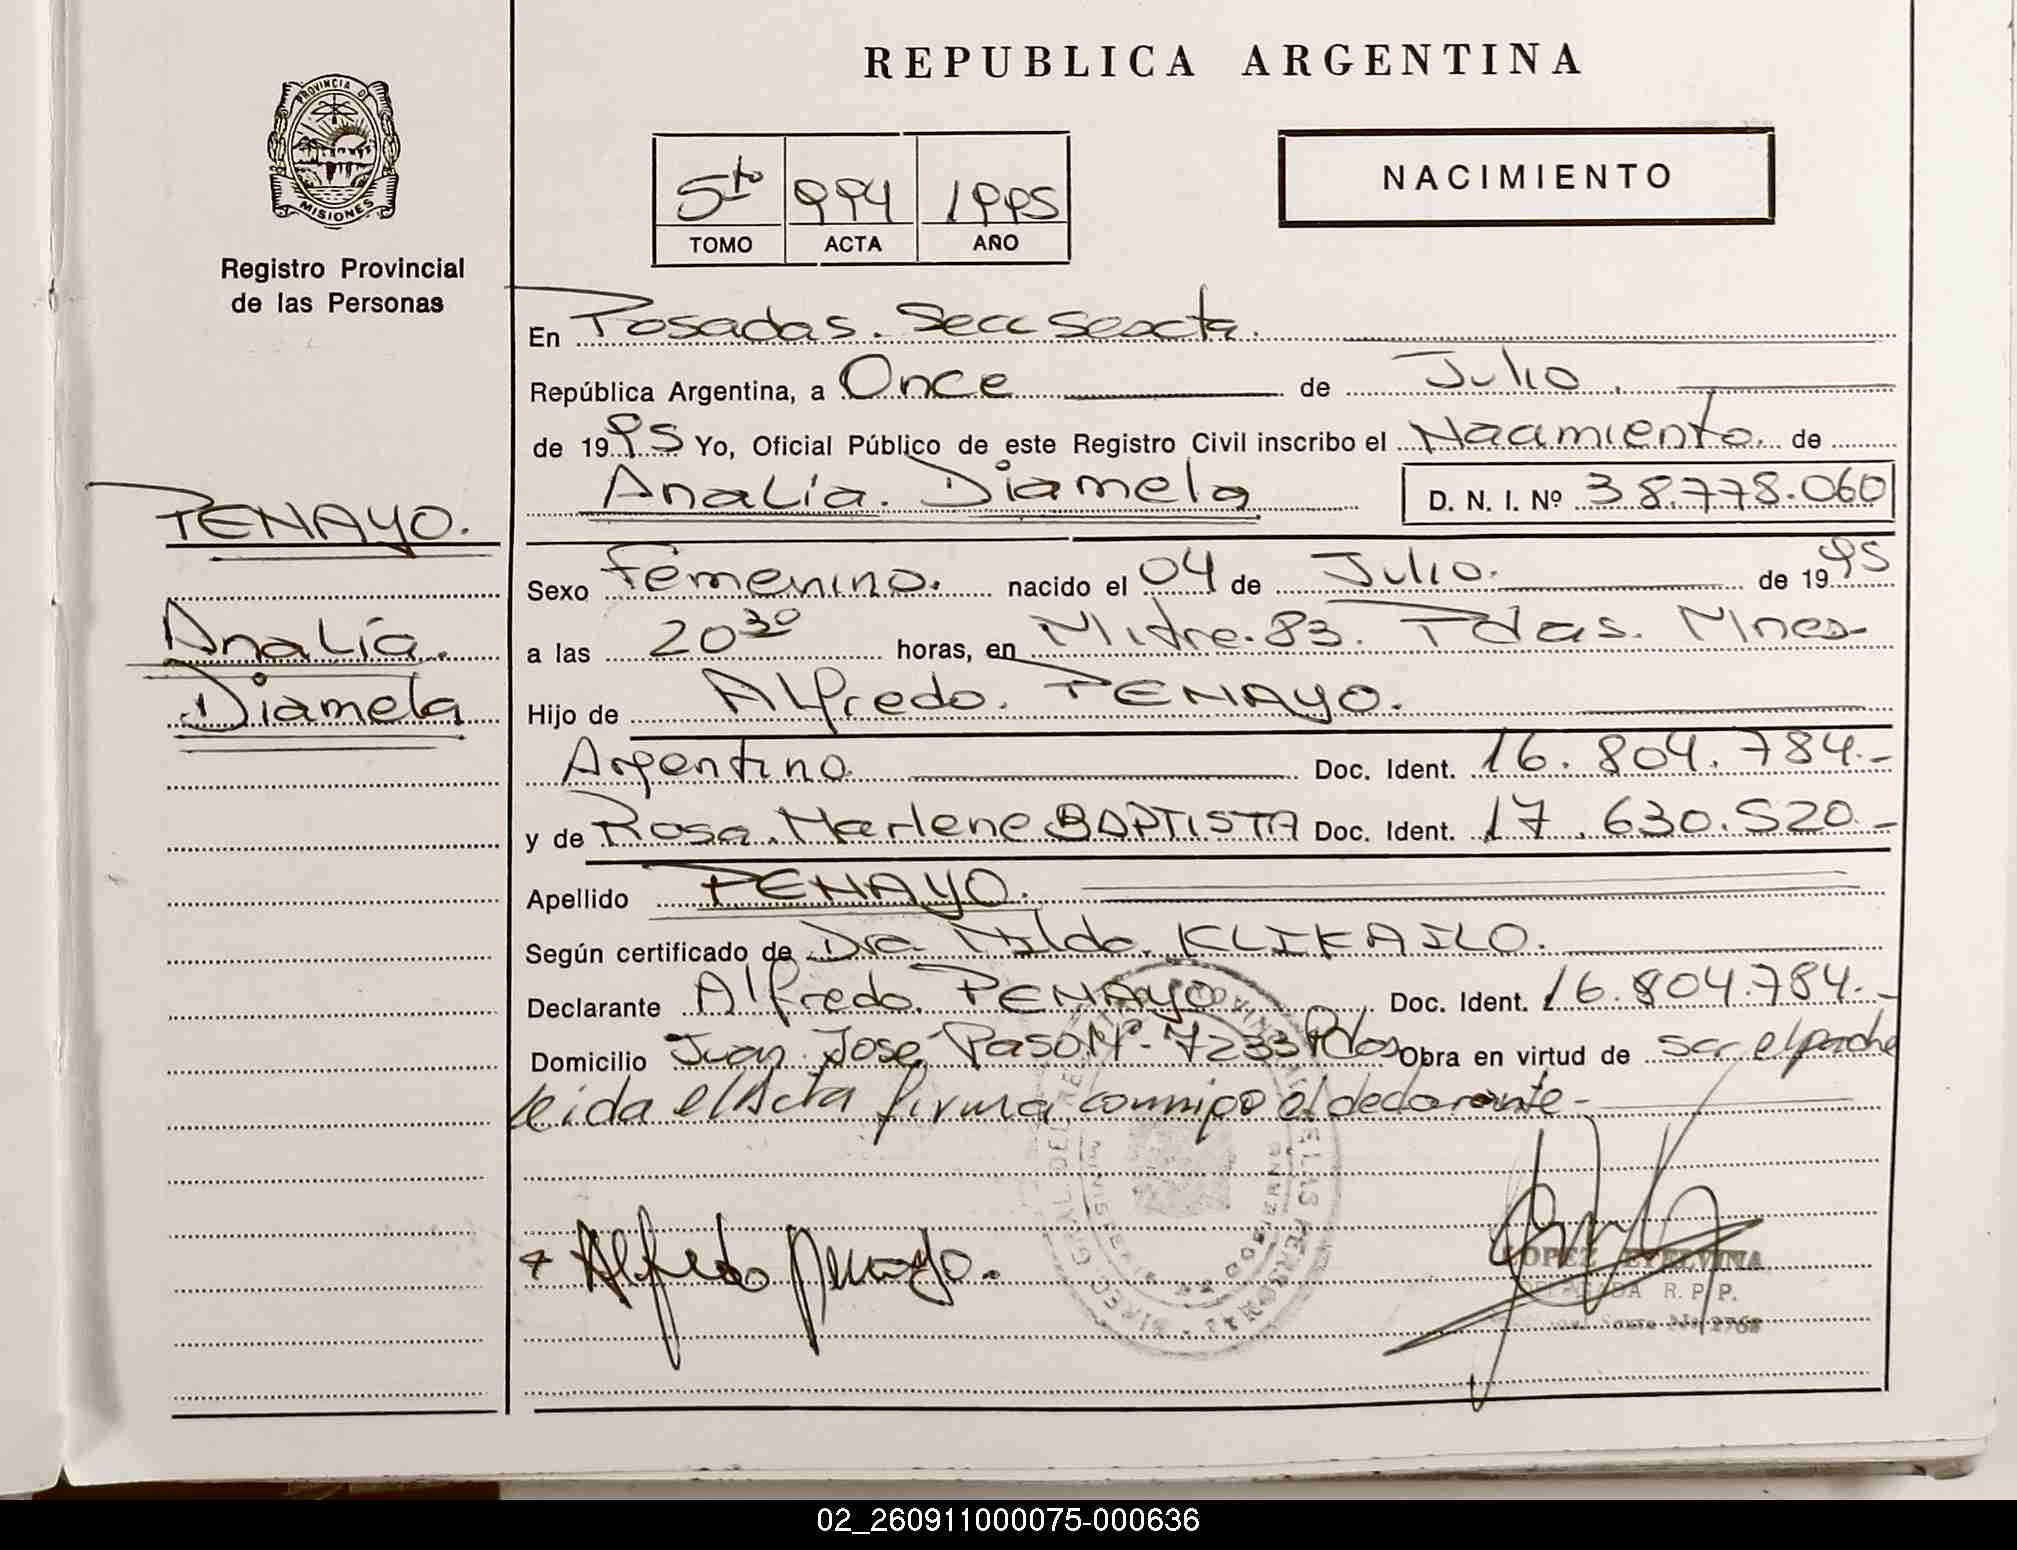 REPUBLICA ARGENTINA
PROVINCIA D
MISIONES
Registro Provincial
de las Personas
5to 994 1995
TOMO ACTA AÑO
NACIMIENTO
En Posadas. Secc Sexta.
República Argentina, a Once de Julio
de 1995 Yo, Oficial Público de este Registro Civil inscribo el Nacimiento de
Analía. Diamela D. N. I. Nº 38.778.060
PENAYO.
Analía.
Diamela
Sexo femenino. nacido el 04 de Julio. de 1995
a las 20 30 horas, en Mitre. 83. Pdas. Mnes
Hijo de Alfredo. PENAYO.
Argentino Doc. Ident. 16.804.784.-
y de Rosa. Marlene BAPTISTA Doc. Ident. 17.630.520.-
Apellido PENAYO.
Según certificado de Dra. Nilda. KLIKAILO.
Declarante Alfredo. PENAYO Doc. Ident. 16.804.784.-
Domicilio Juan José Paso Nº 7233 Pdas Obra en virtud de ser el padre
leida el Acta firma conmigo el declarante-
Alfredo Penayo.
LOPEZ ETELVINA
R. P. P.
02_260911000075-000636